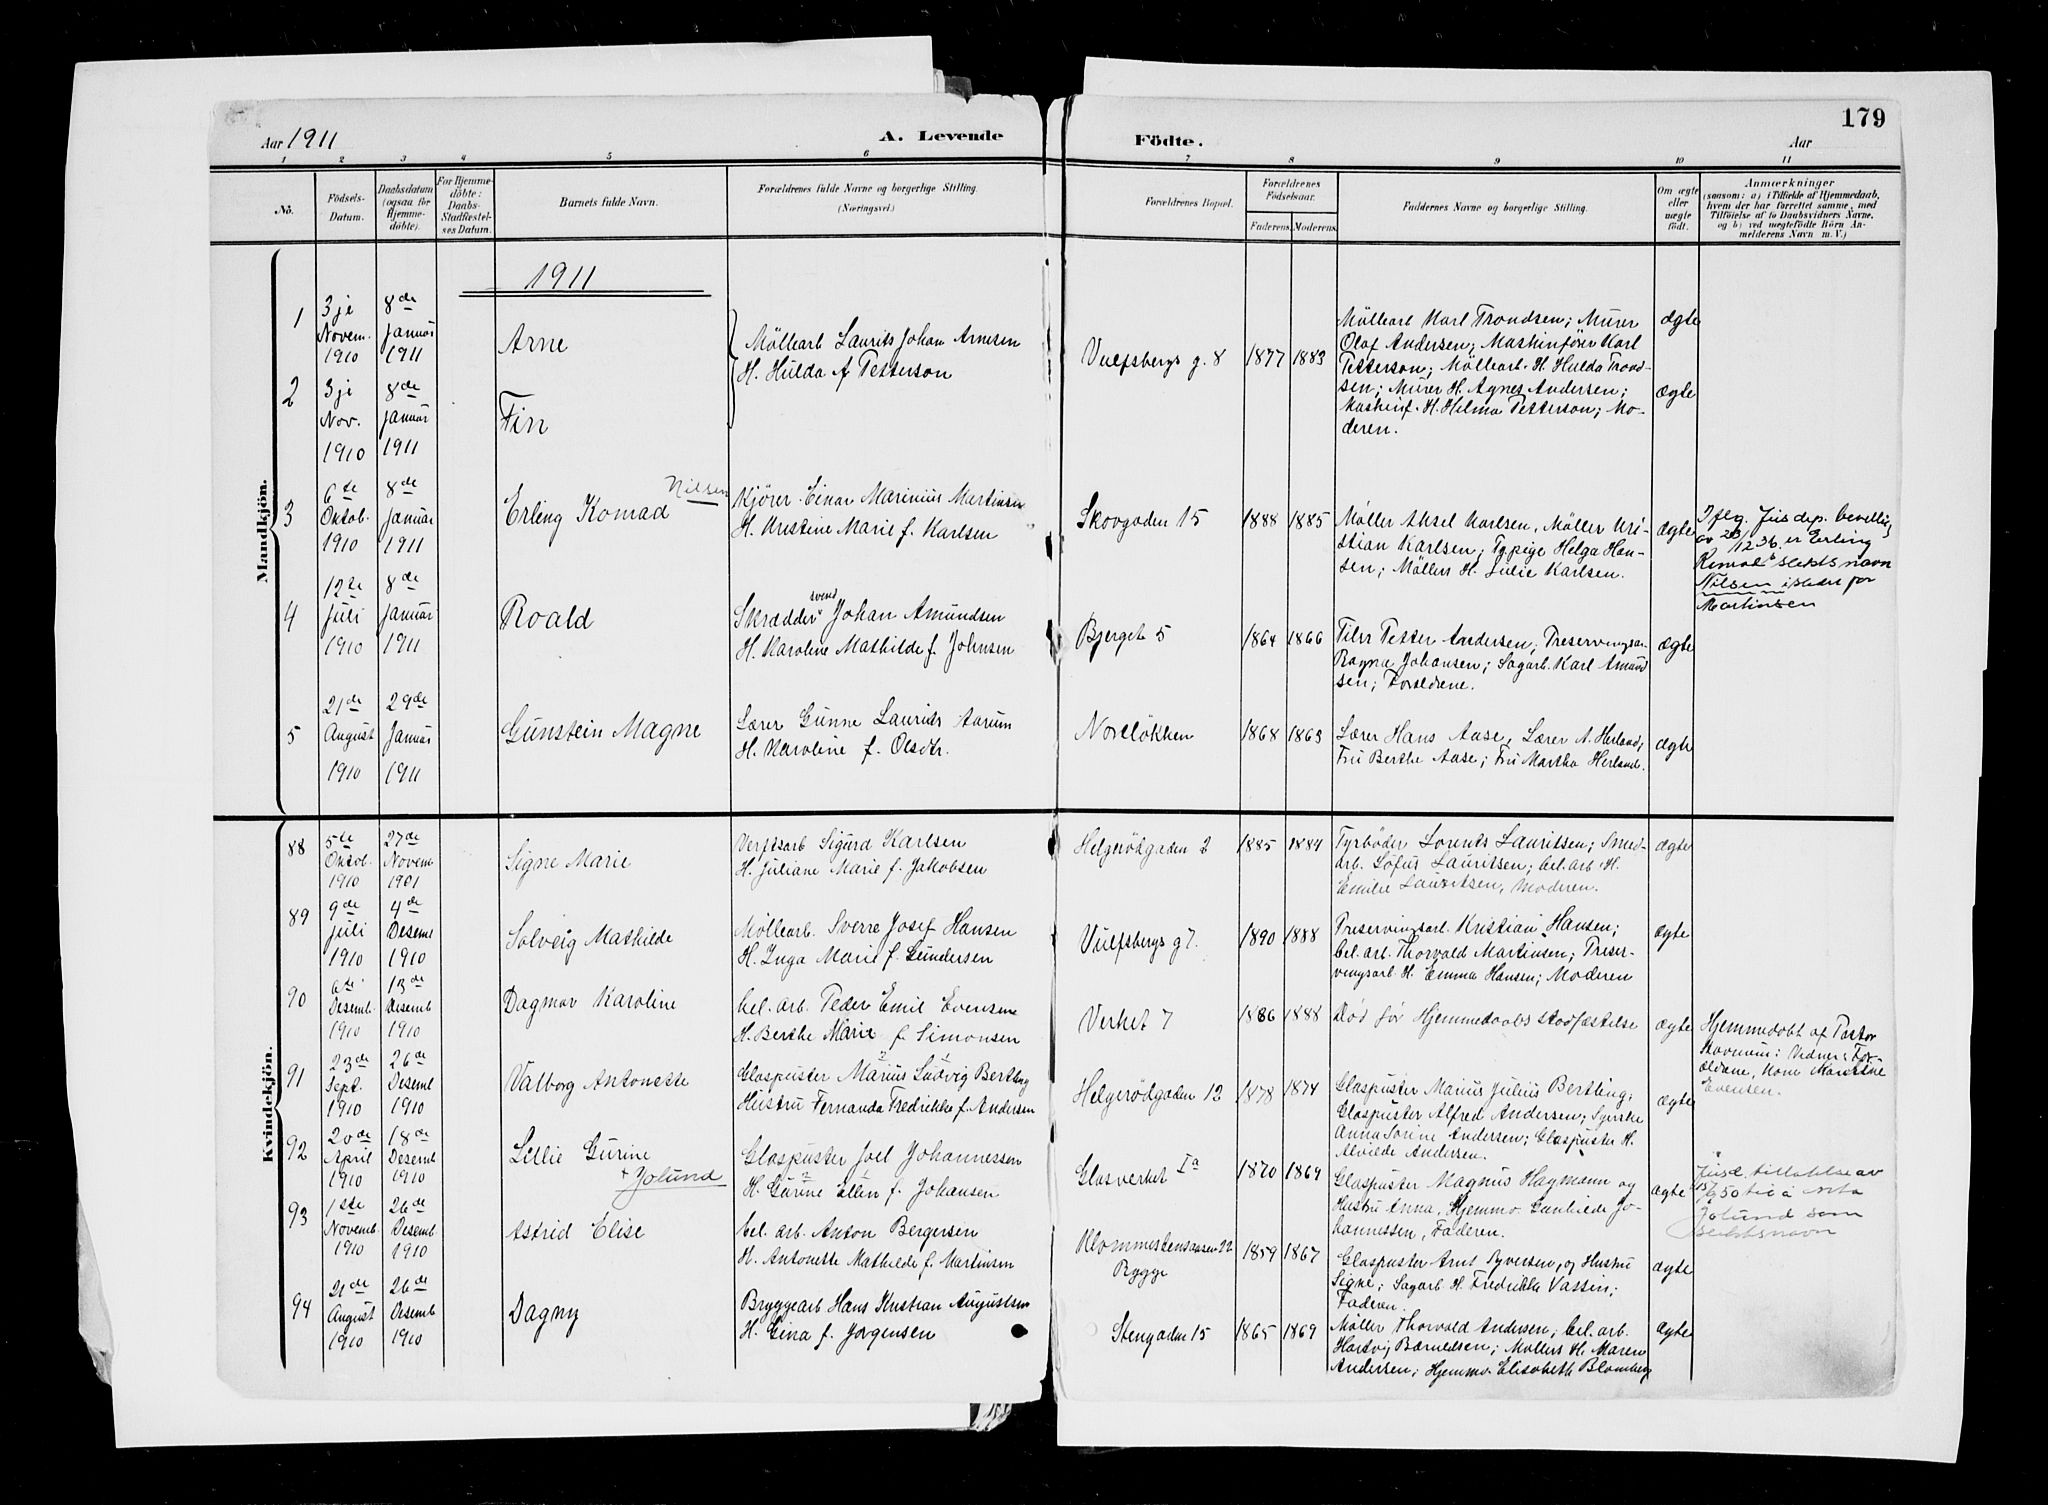 179
Aar 1911
A. Levende Födte.
Aar
1 2 3 4 5 6 7 8 9 10 11
No.
Födsels-
Datum.
Daabsdatum
(ogsaa for
Hjemme-
döbte).
For Hjemme-
döbte:
Daabs-
Stadfæstel-
ses Datum.
Barnets fulde Navn.
Forældrenes fulde Navne og borgerlige Stilling.
(Næringsvei.)
Forældrenes Bopæl.
Forældrenes
Födselsaar.
Faderens. Moderens.
Faddernes Navne og borgerlige Stilling.
Om ægte
eller
uægte
födt.
Anmærkninger
(saasom: a) i Tilfælde af Hjemmedaab,
hvem der har forrettet samme, med
Tilföielse af to Daabsvidners Navne,
og b) ved uægtefödte Börn An-
melderens Navn m. V.)
Mandkjön.
1911
1
3je
Novem.
1910
8de
Januar
1911
Arne
Möllearb Laurits Johan Arnesen
H. Hulda f Petterson
Vulfsbergs g. 8
1877 1883
Möllearb Karl Trondsen; Murer
Olaf Andersen; Maskinförer Karl
Petterson; Möllearb. H. Hulda Trond-
sen; Murer H. Agnes Andersen;
Maskinf. H. Hilma Petterson; Mo-
deren.
ægte
2
3je
Nov.
1910
8de
Januar
1911
Fin
ægte
3
6te
Oktob.
1910
8de
Januar
1911
Erling Konrad Nilsen
Kjörer Einar Marinius Martinsen
H. Kristine Marie f. Karlsen
Skovgaden 15
1888 1885
Möller Aksel Karlsen, Möller Kri-
stian Karlsen; Tjpige Helga Han-
sen; Möllers H. Julie Karlsen.
ægte
Iflg. Jusdep. bevillig
av 23/12 36. er Erling
slektsnavn
Nilsen istedet for
Martinsen
4
12te
Juli
1910
8de
Januar
1911
Roald
Skræddersvend Johan Amundsen
H. Karoline Mathilde f. Johnsen
Bjerget 5
1864 1866
Petter Andersen, Preservingsar.
Ragna Johansen; Sagarb. Karl Amund
sen; Forældrene.
ægte
5
21de
August
1910
29de
Januar
1911
Gunstein Magne
Lærer Gunne Laurits Aarum
H. Karoline f. Olsdtr.
Noreløkken
1868 1863
Lærer Hans Aase, Lærer A. Herland,
Fru Berthe Aase; Fru Martha Herland.
ægte
Kvindekjön.
88
5te
Oktob.
1910
27de
Novem
1901
Signe Marie
Verftsarb Sigurd Karlsen
H. Juliane Marie f. Jakobsen
Helgerödgaden 2
1885 1884
Fyrböder Lorents Lauritsen; Smed-
arb. Sofus Lauritsen; bel. arb H.
Emilie Lauritsen, Moderen.
ægte
89
9de
Juli
1910
4de
Desemb
1910
Solveig Mathilde
Möllearb. Sverre Josef Hansen
H. Inga Marie f. Gundersen
Vulfsbergs g 7.
1890 1888
Preservingsarb. Kristian Hansen;
bel. arb. Thorvald Martinsen; Preser-
vingsarb H. Emma Hansen; Moderen
ægte
90
6te
Desemb.
1910
13de
Desemb
1910
Dagmar Karoline
bel. arb. Peder Emil Evensen
H. Berthe Marie f Simonsen
Verket 7
1886 1888
Död för Hjemmedaabs stadfæstelse
ægte
Hjemmedöbt af Pastor
: Vidner: For-
ældrene, Kone
Evensen.
91
23de
Sept.
1910
26de
Desemb
1910
Valborg Antonette
Glaspuster Marius Ludvig Bertling
Hustru Fernanda Fredrikke f. Andersen
Helgerödgaden 12
1878 1874
Glaspuster Marius Julius Bertling;
Glaspuster Alfred Andersen; Syerske
Anna Sorine Andersen; Glaspuster H.
Alvilde Andersen.
ægte
92
20de
April
1910
18de
Desemb
1910
Lellie Gurine
+ Jolund
Glaspuster Joel Johannessen
H. Gurine Ellen f. Johansen
Glasverket Ia
1870 1869
Glaspuster Magnus Hagmann og
Hustru Anna, Hjemmev. Gunhilde Jo-
hannessen, Faderen.
ægte
Jusd. tillatelse av
15/6 50 til å
Jolund som
slektsnavn
93
1ste
Novemb.
1910
26de
Desemb
1910
Astrid Elise
bel. arb. Anton Bergersen
H. Antonette Mathilde f. Martinsen
22
Rygge
1859 1867
Glaspuster Syversen, og Hustru
Signe; Sagarb H. Fredrikke Vassen;
Faderen.
ægte
94
21de
August
1910
26de
Desemb
1910
Dagny
Bryggearb Hans Kristian Augustsen
H. Gina f. Jørgensen
Stengaden 15
1865 1869
Möller Thorvald Andersen; bel. arb.
Hartvig Berntdsen; Møllers H. Maren
Andersen; Hjemmev. Elisabeth Blomberg
ægte